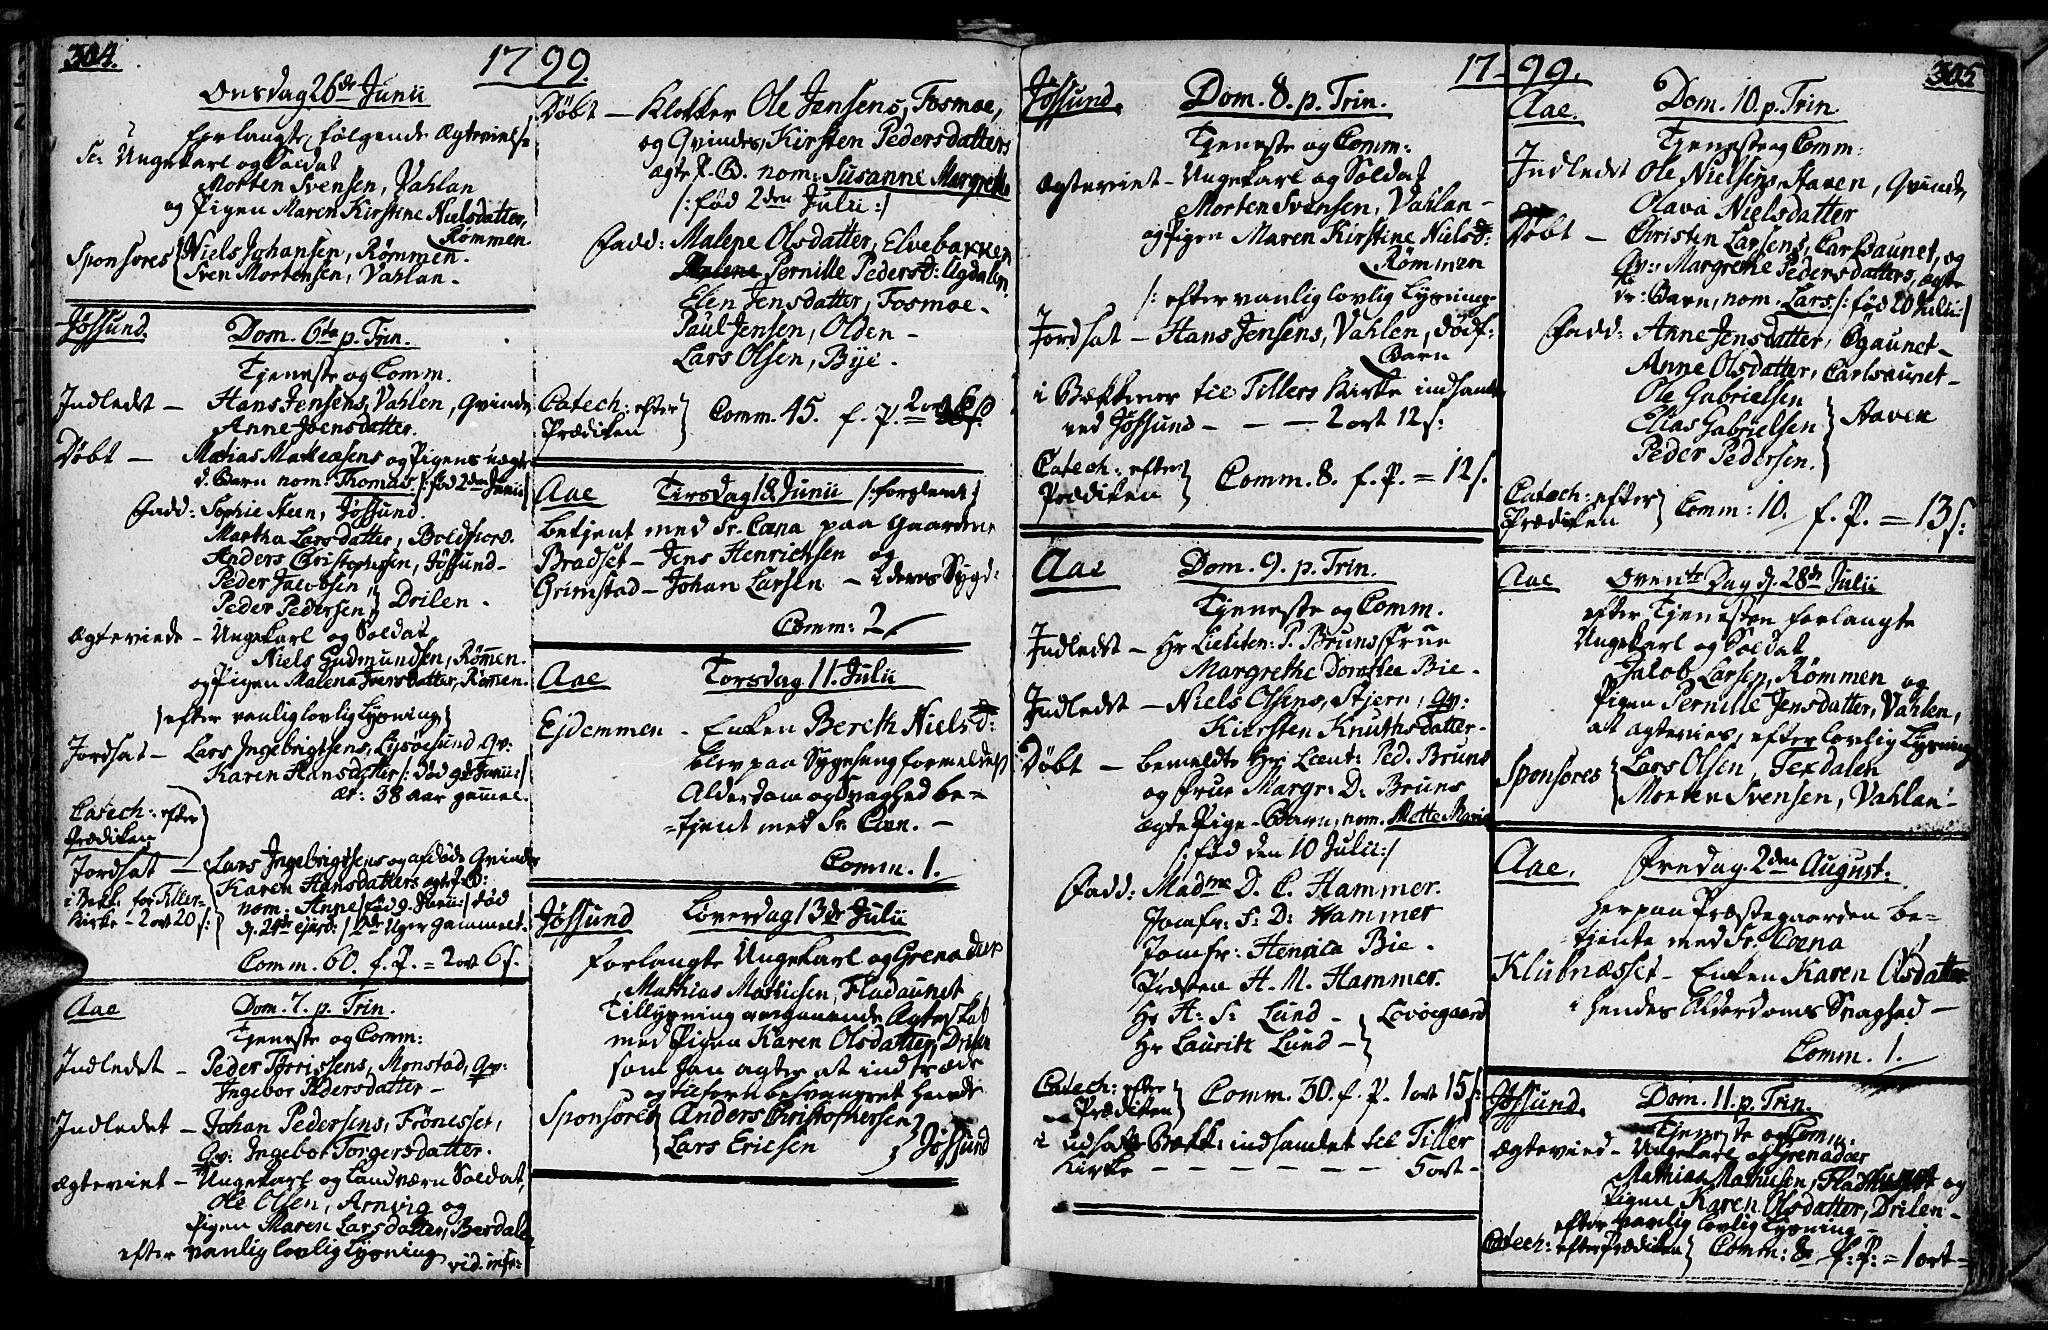 304.
1799.
Onsdag 26de Junii
Forlangte følgende Ægtevielse
Sc: Ungekarl og Soldat
Morten Svensen, Vahlan
og Pigen Maren Kirstine Nielsdatter,
Rømmen.
Sponsores Niels Johansen, Rømmen.
Sven Mortensen, Vahlan.
Jøssund.
Dom. 6te p. Trin.
Tjeneste og Comm.
Indledet — Hans Jensens, Vahlen, Qvinde,
Anne Joensdatter.
Døbt — Matias Matheæsens og Pigens uægte
d. Barn nom. Thomas. /: fød 2den Junii :/
Fadd: Sophie Steen, Jøssund.
Martha Larsdatter, Boldfiord.
Anders Christophersen, Jøssund —
Peder Jacobsen
Peder Pedersen Drilen.
Ægteviede — Ungekarl og Soldat
Niels Gudmundsen, Rømen.
og Pigen Malena Iversdatter, Rømen.
/: efter vanlig lovlig Lysning :/
Jordsat — Lars Ingebrigtsens, Lysøesund Qv:
Karen Hansdatter /: død 9de Junii :/
æt: 38 aar gamel.
Catech: efter
Prædiken
Jordsat — Lars Ingebrigtsens og afdøde Qvindes
Karen Hansdatters ægte
nom: Anne /: fød 9. Junii :/ død
i Bekk. for Tiller-
Kirke — 2 ort 20 s:
d. 24de ejusd: / 2de Uger gammel.
Comm. 60. f. P. = 2 ort 6 s.
Aae
Dom. 7. p. Trin.
Tjeneste og Comm:
Indledet — Peder Torrissens, Monstad, Qv:
Ingebor Pedersdatter —
Indledet — Johan Pedersens, Frønesset,
Qv: Ingebor Torgersdatter.
Ægteviet — Ungekarl og Landværn Soldat,
Ole Olsen, Arnvig og
Pigen Maren Larsdatter, Berdalen
efter vanlig lovlig Lysning
vid. infr:
Døbt — Klokker Ole Jensens, Fosmoe,
og Qvindes, Kirsten Pedersdatters
ægte P. B. nom: Susanne Margrethe
/: fød 2den Julii :/
Fadd: Malene Olsdatter, Elvebakken
Pernille Pedersd: Agdalen
Elen Jensdatter, Fosmoe —
Paul Jensen, Olden —
Lars Olsen, Bye.
Catech: efter
Prædiken
Comm. 45. f. P. = 2 ort
Aae
Tirsdag 18. Junii /: forglemt :/
betjent med Sr. Cœna paa Gaardene
Bradset — Jens Henrichsen og
Grimstad — Johan Larsen — i deres Sygd:
Comm: 2
Aae
Torsdag 11. Julii
Ejdemmen — Enken Bereth Nielsd:
blev paa Sygeseng formedelst
Alderdom og Svaghed be=
=tjent med Sr. Cœn. —
Comm. 1.
Jøssund
Løverdag 13de Julii
Forlangte Ungekarl og Grenadeer
Mathias Mathiesen, Fladaunet
Tillysning Ægteskab
med Pigen Karen Olsdatter, Drilen
som han agter at indtræde
og tilforn besvangret hende
Sponsores Anders Christophersen
Lars Ericsen Jøssund
17-99.
305
Jøssund.
Dom. 8. p. Trin.
Tjeneste og Comm:
Ægteviet — Ungekarl og Soldat
Morten Svensen, Vahlan —
og Pigen Maren Kirstine Nielsd:
Rømmen
/: efter vanlig lovlig Lysning —
Jordsat — Hans Jensens, Vahlen, dødf:
Barn
i Bækkener til Tillers Kirke indsamlet
ved Jøssund — — — 2 ort 12 s:
Catech: efter
Prædiken
Comm. 8. f. P. = 12 s.
Aae
Dom. 9. p. Trin.
Tjeneste og Comm.
Indledet — Hr Lieuten: P. Bruns Frue
Margrethe Dorothee Bie —
Indledet — Niels Olsens, Stjern, Qv:
Kiersten Knuthsdatter —
Døbt — bemeldte Hr Lieut: Ped. Bruns
og Frue Margr: D: Bruns
ægte Pige-Barn, nom. Mette Maria
/: fød den 10 Julii :/
Fadd: Madme D. C. Hammer.
Jomfr: S: D: Hammer
Jomfr: Henrica Bie.
Præsten H. M. Hammer.
Hr H: S: Lund —
Hr Lauritz Lund — Lovøegaard
Catech: efter
Prædiken
Comm. 30. f. P. 1 ort 15 s:
i udsatte Bækk: indsamlet til Tiller
Kirke — — — — — — 5 ort —
Aae.
Dom. 10. p. Trin
Tjeneste og Comm:
Indledet Ole Nielsens, Haven, Qvinde,
Olava Nielsdatter
Døbt — Christen Larsens, Carlsaunet, og
Qv: Margrethe Pedersdatters, ægte
Barn, nom. Lars. /: fød 20 Julii :/
Fadd: Anne Jensdatter, Opaunet —
Anne Olsdatter, Carlsaunet —
Ole Gabrielsen
Elias Gabrielsen Haven
Peder Pedersen.
Catech: efter
Prædiken
Comm: 10. f. P. = 13 s:
Aae
Oven Dag d. 28de Julii
efter Tjenesten forlangte
Ungekarl og Soldat
Jacob Larsen, Rømmen og
Pigen Pernille Jensdatter, Vahlen,
at ægtevies, efter lovlig Lysning
Sponsores Lars Olsen, Texdalen
Morten Svensen, Vahlan
Aae.
Fredag 2den August.
her paa Præstegaarden be=
tjente med Sr. Cœna
Klubnæsset — Enken Karen Olsdatter
i hendes Alderdoms Svaghed —
Comm. 1.
Jøssund.
Dom. 11. p. Trin.
Tjeneste og Comm.
Ægteviet — Ungekarl og Grenadeer
Mathias Mathiesen, Fladaunet og
Pigen Karen Olsdatter, Drilen —
efter vanlig lovlig Lysning —
Catech: efter Prædiken Comm: 8. f: P: = 1 ort —